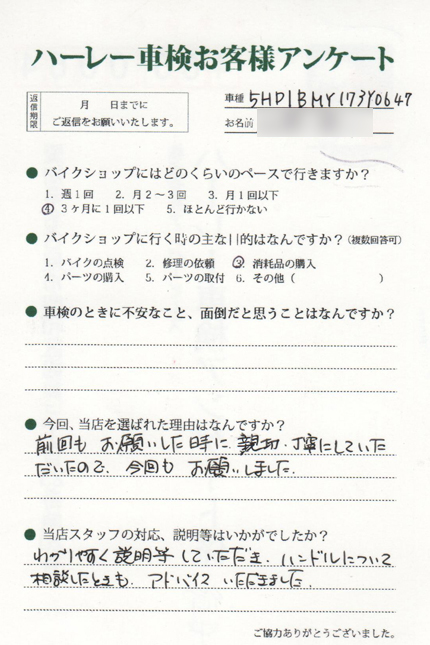 ハーレー車検お客様アンケート
返信期限
月　日までに
ご返信をお願いいたします。
車種 5HD1BMY173Y0647
お名前
● バイクショップにはどのくらいのペースで行きますか？
1．週1回　2．月2～3回　3．月1回以下
④ 3ヶ月に1回以下　5．ほとんど行かない
● バイクショップに行く時の主な目的はなんですか？（複数回答可）
1．バイクの点検　2．修理の依頼　③．消耗品の購入
4．パーツの購入　5．パーツの取付　6．その他（　　　）
● 車検のときに不安なこと、面倒だと思うことはなんですか？
● 今回、当店を選ばれた理由はなんですか？
前回も お願いした時に 親切・丁寧にしていた
だいたので、今回も お願いしました。
● 当店スタッフの対応、説明等はいかがでしたか？
わかりやすく説明等していただき、ハンドルについて
相談したときも、アドバイス いただきました。
ご協力ありがとうございました。